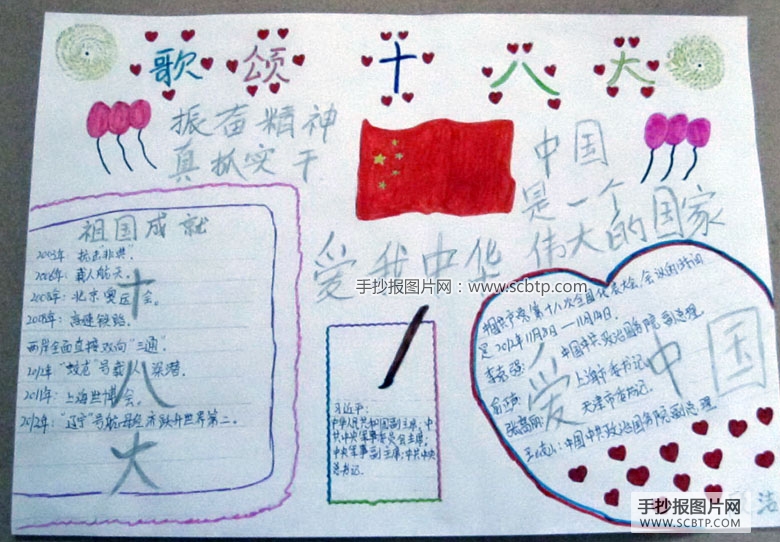 歌颂十八大
振奋精神
真抓实干
中国
是一个
伟大的国家
爱我中华
手抄报图片网：www.scbtp.com
祖国成就
2003年：抗击非典。
2006年：载人航天。
2008年：北京奥运会。
2008年：高速铁路。
两岸全面直接双向"三通"。
2012年"蛟龙"号载人深潜。
2011年：上海世博会。
2012年："辽宁"号航母经济跃升世界第二。
十八大
习近平：
中华人民共和国副主席；中
共中央军事委员会主席，
中央军事副主席；中共中央
总书记。
中国共产党第十八次全国代表大会会议的时间
是2012年11月8日—11月14日。
李克强：中国中共政治国务院副总理
俞正声：上海市委书记
张高丽：天津市委书记。
王岐山：中国中共政治国务院副总理
爱中国
手抄报图片网
WWW.SCBTP.COM
洁